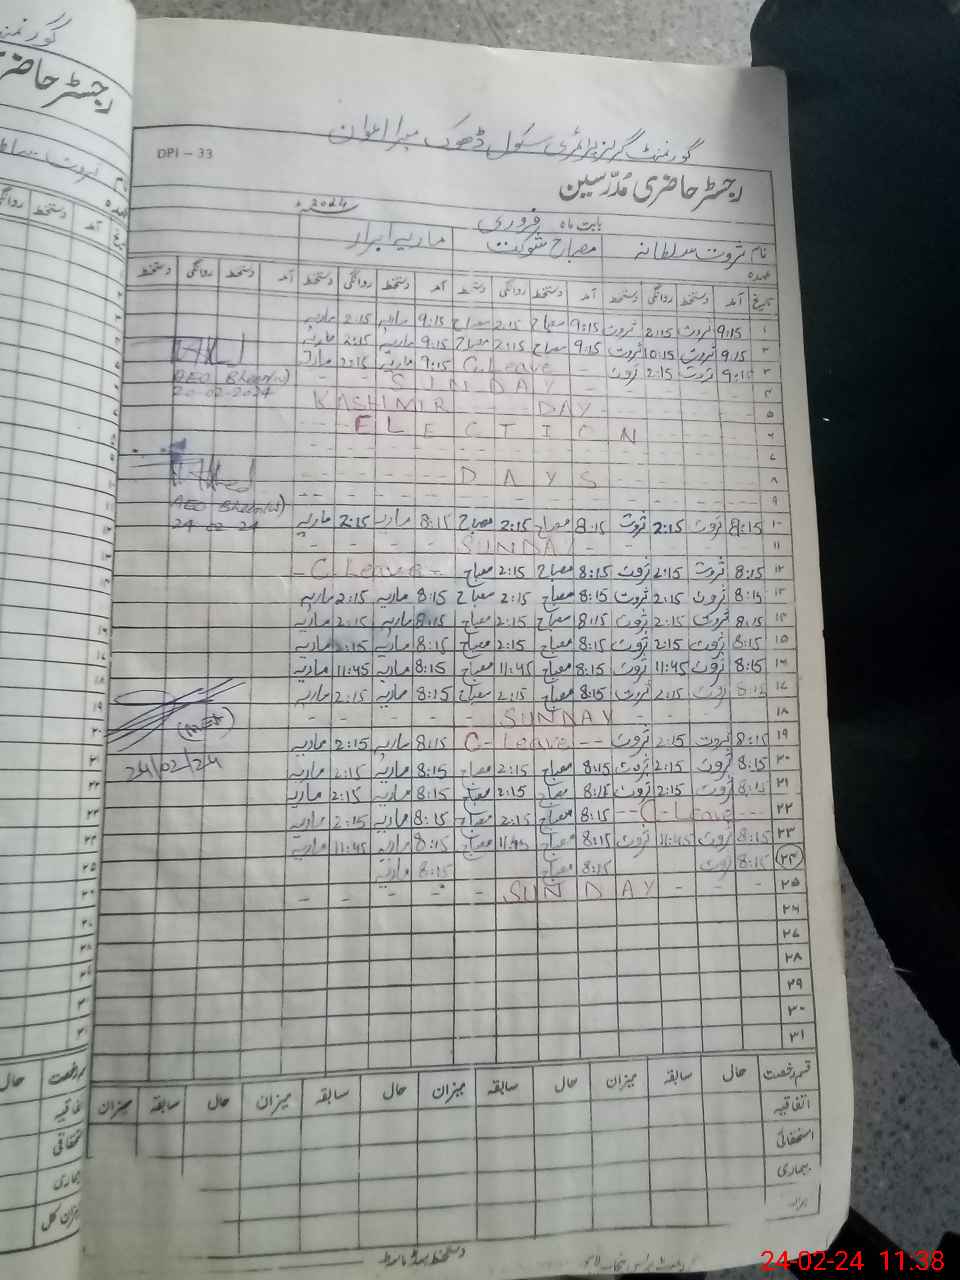 گورنمنٹ گرلز پرائمری سکول ڈھوک میرا اعوان
DPI - 33
رجسٹر حاضری مُدرّسین
بابت ماہ فروری 2024ء
نام ثروت سلطانہ مصباح شوکت ماریہ ابرار
عہدہ
تاریخ آمد دستخط روانگی دستخط آمد دستخط روانگی دستخط آمد دستخط روانگی دستخط آمد دستخط روانگی دستخط
۱ 9:15 ثروت 2:15 ثروت 9:15 مصباح 2:15 مصباح 9:15 ماریہ 2:15 ماریہ
۲ 9:15 ثروت 10:15 ثروت 9:15 مصباح 2:15 مصباح 9:15 ماریہ 2:15 ماریہ
۳ 9:15 ثروت 2:15 ثروت - C.Leave 9:15 ماریہ 2:15 ماریہ
۴ - - SUNDAY - -
AEO Bheen(w)
20-02-2024
۵ KASHMIR - - - DAY
۶ ELECTION
۷
۸ DAYS
۹
AEO Bheen(w)
24-02-24
۱۰ 8:15 ثروت 2:15 ثروت 8:15 مصباح 2:15 مصباح 8:15 ماریہ 2:15 ماریہ
۱۱ - - - SUNDAY -
۱۲ 8:15 ثروت 2:15 ثروت 8:15 مصباح 2:15 مصباح - C-Leave -
۱۳ 8:15 ثروت 2:15 ثروت 8:15 مصباح 2:15 مصباح 8:15 ماریہ 2:15 ماریہ
۱۴ 8:15 ثروت 2:15 ثروت 8:15 مصباح 2:15 مصباح 8:15 ماریہ 2:15 ماریہ
۱۵ 8:15 ثروت 2:15 ثروت 8:15 مصباح 2:15 مصباح 8:15 ماریہ 2:15 ماریہ
۱۶ 8:15 ثروت 11:45 ثروت 8:15 مصباح 11:45 مصباح 8:15 ماریہ 11:45 ماریہ
۱۷ 8:15 ثروت 2:15 ثروت 8:15 مصباح 2:15 مصباح 8:15 ماریہ 2:15 ماریہ
۱۸ - - - - - SUNDAY
۱۹ 8:15 ثروت 2:15 ثروت - - C-Leave 8:15 ماریہ 2:15 ماریہ
24/02/24
۲۰ 8:15 ثروت 2:15 ثروت 8:15 مصباح 2:15 مصباح 8:15 ماریہ 2:15 ماریہ
۲۱ 8:15 ثروت 2:15 ثروت 8:15 مصباح 2:15 مصباح 8:15 ماریہ 2:15 ماریہ
۲۲ - - C-Leave - - - 8:15 مصباح 2:15 مصباح 8:15 ماریہ 2:15 ماریہ
۲۳ 8:15 ثروت 11:45 ثروت 8:15 مصباح 11:45 مصباح 8:15 ماریہ 11:45 ماریہ
۲۴ 8:15 ثروت 8:15 مصباح 8:15 ماریہ
۲۵ - - - - - SUNDAY - - -
۲۶
۲۷
۲۸
۲۹
۳۰
۳۱
قسم رخصت حال سابقہ میزان حال سابقہ میزان حال سابقہ میزان حال سابقہ میزان
اتفاقیہ
استحقاقی
بیماری
دستخط ہیڈ ماسٹر
24-02-24 11:38